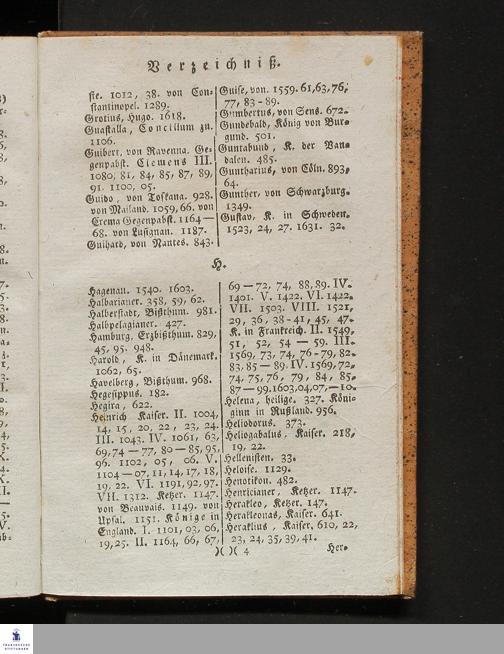 Verzeichniß.
sie. 1012, 38. von Con-
stantinopel. 1289.
Grotius, Hugo. 1618.
Guastalla, Concilium zu.
1106.
Guibert, von Ravenna. Ge-
genpabst. Clemens III.
1080, 81, 84, 85, 87, 89,
91. 1100, 05.
Guido, von Toskana. 928.
von Mailand. 1059, 66. von
Crema Gegenpabst. 1164—
68. von Lusignan. 1187.
Guihard, von Nantes. 843.
Guise, von. 1559. 61, 63, 76,
77, 83-89.
Gumbertus, von Sens. 672.
Gundebald, König von Bur-
gund. 501.
Guntabund, K. der Van-
dalen. 485.
Guntharius, von Cöln. 893,
64.
Gunther, von Schwarzburg.
1349.
Gustav, K. in Schweden.
1523, 24, 27. 1631. 32.
H.
Hagenau. 1540. 1603.
Halbarianer. 358, 59, 62.
Halberstadt, Bißthum. 981.
Halbpelagianer. 427.
Hamburg, Erzbißthum. 829,
45, 95. 948.
Harold, K. in Dänemark.
1062, 65.
Havelberg, Bißthum. 968.
Hegesippus. 182.
Hegira, 622.
Heinrich Kaiser. II. 1004,
14, 15, 20, 22, 23, 24.
III. 1043. IV. 1061, 63,
69, 74—77, 80—85, 95,
96. 1102, 05, 06. V.
1104—07, 11, 14, 17, 18,
19, 22. VI. 1191, 92, 97.
VII. 1312. Ketzer. 1147.
von Beauvais. 1149. von
Upsal. 1151. Könige in
England. I. 1101, 03, 06,
19, 25. II. 1164, 66, 67,
69—72, 74, 88, 89. IV.
1401. V. 1422. VI. 1422.
VII. 1503. VIII. 1521,
29, 36, 38-41, 45, 47.
K. in Frankreich. II. 1549,
51, 52, 54—59. III.
1569, 73, 74, 76-79, 82.
83, 85—89. IV. 1569, 72,
74, 75, 76, 79, 84, 85,
87—99. 1603, 04, 07,—10.
Helena, heilige. 327. Köni-
ginn in Rußland. 956.
Heliodorus. 373.
Heliogabalus, Kaiser. 218,
19, 22.
Hellenisten. 33.
Heloise. 1129.
Henotikon. 482.
Henricianer, Ketzer. 1147.
Herakleo, Ketzer. 147.
Herakleonas, Kaiser. 641.
Heraklius, Kaiser. 610, 22,
23, 24, 35, 39, 41.
)( )( 4
Her-